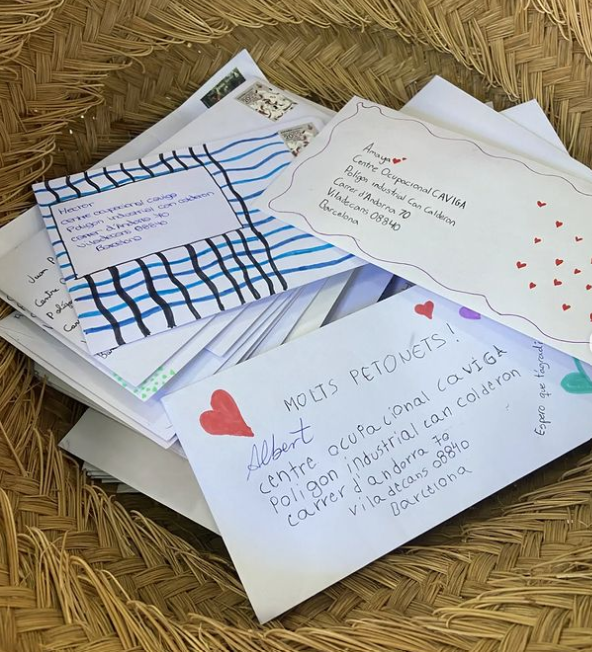 Amaya
Centre Ocupacional CAVIGA
Polígon industrial Can Calderon
Carrer d'Andorra 70
Viladecans 08840
Barcelona
Hector
centre ocupacional caviga
Poligon industrial can calderon
carrer d'Andorra 70
viladecans 08840
Barcelona
Juan
Centre
MOLTS PETONETS!
Albert
centre ocupacional CaVIGA
Poligon industrial can calderon
carrer d'andorra 70
viladecans 08840
Barcelona
Espero que t'agradi